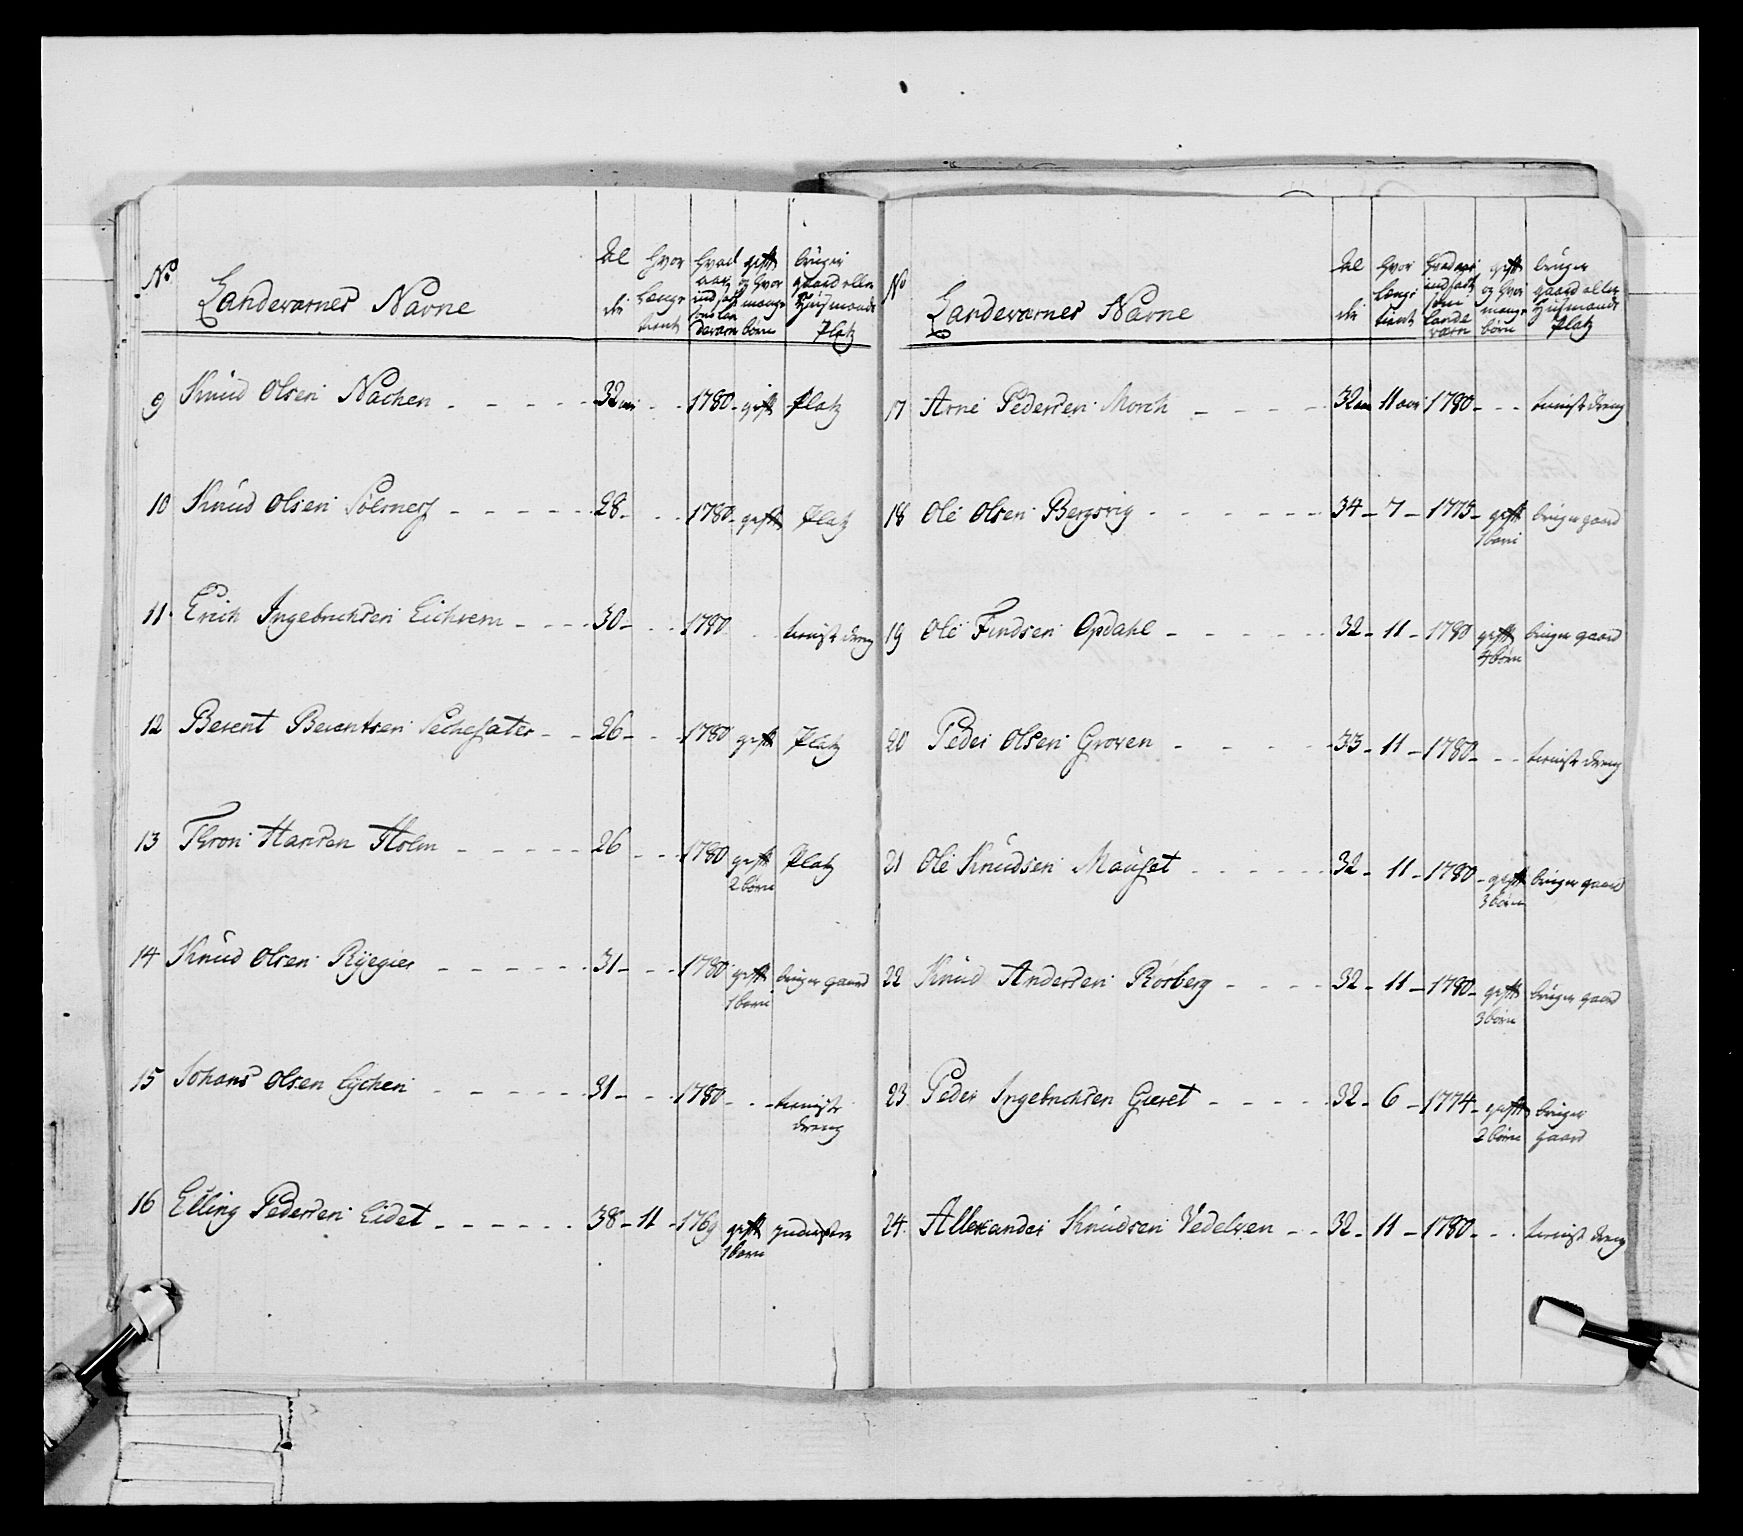 No Landeværnes Navne Al de hvor længe tient hvad aar indsadt som Landeværn gift og hvor mange børn bruger gaard eller Huusmands Platz
9 Knud Olsen Nachen - - - - 32 - - 1780 - gift Platz
10 Knud Olsen - - - - - 28 - - - 1780 - gift Platz
11 Erich Ingebrichtsen - - - 30 - - - 1780 tienist dreng
12 Berent Berentsen - - 26 - - - 1780 gift Platz
13 Thron Hansen Holm - - - - - 26 - - - 1780 gift Platz
2 børn
14 Knud Olsen - - - - - - 31 - - - 1780 gift bruger gaard
1 barn
15 Johans Olsen - - - - - 31 - - - 1780 - - - tienist
dreng
16 Elling Pedersen Eidet - - - - - - 38 - 11 - 1769 gift
1 barn
No Landeværnes Navne Al de hvor længe tient hvad aar indsadt som Lande værn gift og hvor mange børn bruger gaard eller Huusmands Platz
17 Arne Pedersen Morch - - - - 32 aar 11 aar 1780 - - - tienist dreng
18 Ole Olsen Bergsvig - - - - - - 34 - 7 - 1775 - gift bruger gaard
1 barn
19 Ole Findsen Opdahl - - - - - 32 - 11 - 1780 gift bruger gaard
4 børn
20 Peder Olsen Groven - - - - 33 - 11 - 1780 - - - tienist dreng
21 Ole Knudsen Mauset - - - - - 32 - 11 - 1780 - gift bruger gaard
3 børn
22 Knud Andersen Rørberg - - - - 32 - 11 - 1780 - gift bruger gaard
3 børn
23 Peder Ingebrichtsen Gieret - - - - - 32 - 6 - 1774 - gift bruger
2 børn gaard
24 Allexander Knudsen Vedelven - - 32 - 11 - 1780 - - - tienist dreng